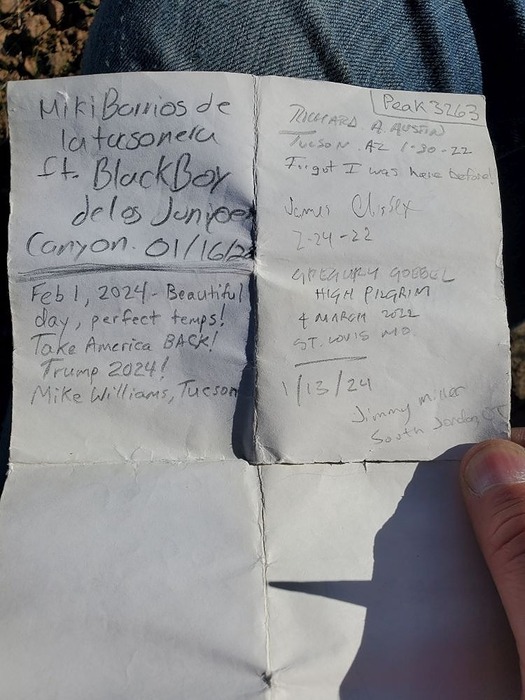 Miki Barrios de
la tusonera
ft. BlackBoy
de los Juniper
Canyon. 01/16/2
Feb 1, 2024 - Beautiful
day, perfect temps!
Take America BACK!
Trump 2024!
Mike Williams, Tucson
Peak 3263
RICHARD A. AUSTIN
TUCSON AZ 1-30-22
Forgot I was here before!
James
2-24-22
GREGORY GOEBEL
HIGH PILGRIM
4 MARCH 2022
ST. LOUIS MO.
1/13/24
Jimmy Miller
South Jordan, UT